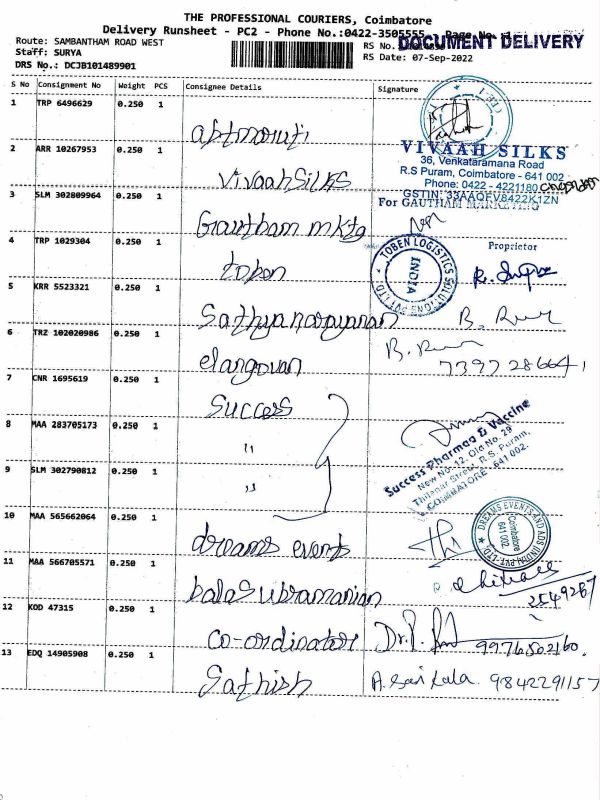 THE PROFESSIONAL COURIERS, Coimbatore
Delivery Runsheet - PC2 - Phone No.:0422-3505555 Page No. :1
Route: SAMBANTHAM ROAD WEST
RS No.
DOCUMENT DELIVERY
Staff: SURYA
RS Date: 07-Sep-2022
DRS No.: DCJB101489901
S No Consignment No Weight PCS Consignee Details Signature
1 TRP 6496629 0.250 1
2 ARR 10267953 0.250 1 VivaahSilks
VIVAAH SILKS
36, Venkataramana Road
R.S Puram, Coimbatore - 641 002
Phone: 0422 - 4221180
GSTIN: 33AAQFV8422K1ZN
3 SLM 302809964 0.250 1 Grautham mktg
For GAUTHAM MARKETING
Proprietor
4 TRP 1029304 0.250 1 toben
TOBEN LOGISTICS SOLUTIONS PVT LTD.
INDIA
5 KRR 5523321 0.250 1 Sathyanarayanan
6 TRZ 102020986 0.250 1 elangovan
73977286641
7 CNR 1695619 0.250 1 Success
8 MAA 283705173 0.250 1 "
9 SLM 302790812 0.250 1 "
Success Pharma & Vaccine
New No. 12, Old No. 29
R.S. Puram,
COIMBATORE - 641 002.
10 MAA 565662064 0.250 1 dreams events
DREAMS EVENTS AND ADS (INDIA) PVT. LTD.
Coimbatore
641 002
11 MAA 566705571 0.250 1 balasubramanian
2549267
12 KOD 47315 0.250 1 co-ordinator
9976502160.
13 EDQ 14905908 0.250 1 Sathish
A. Sasi kala. 9842291157